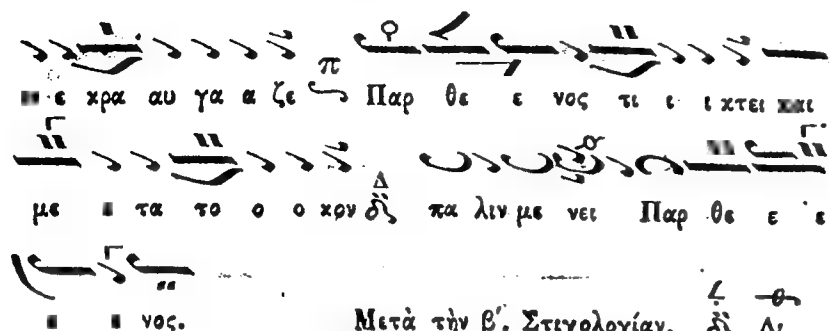 ε κρα αυ γα α ζε Παρ θε ε νος τι ι ι κτει και
με τα το ο ο κον πα λιν με νει Παρ θε ε ε
νος. Μετὰ τὴν β'. Στιχολογίαν.